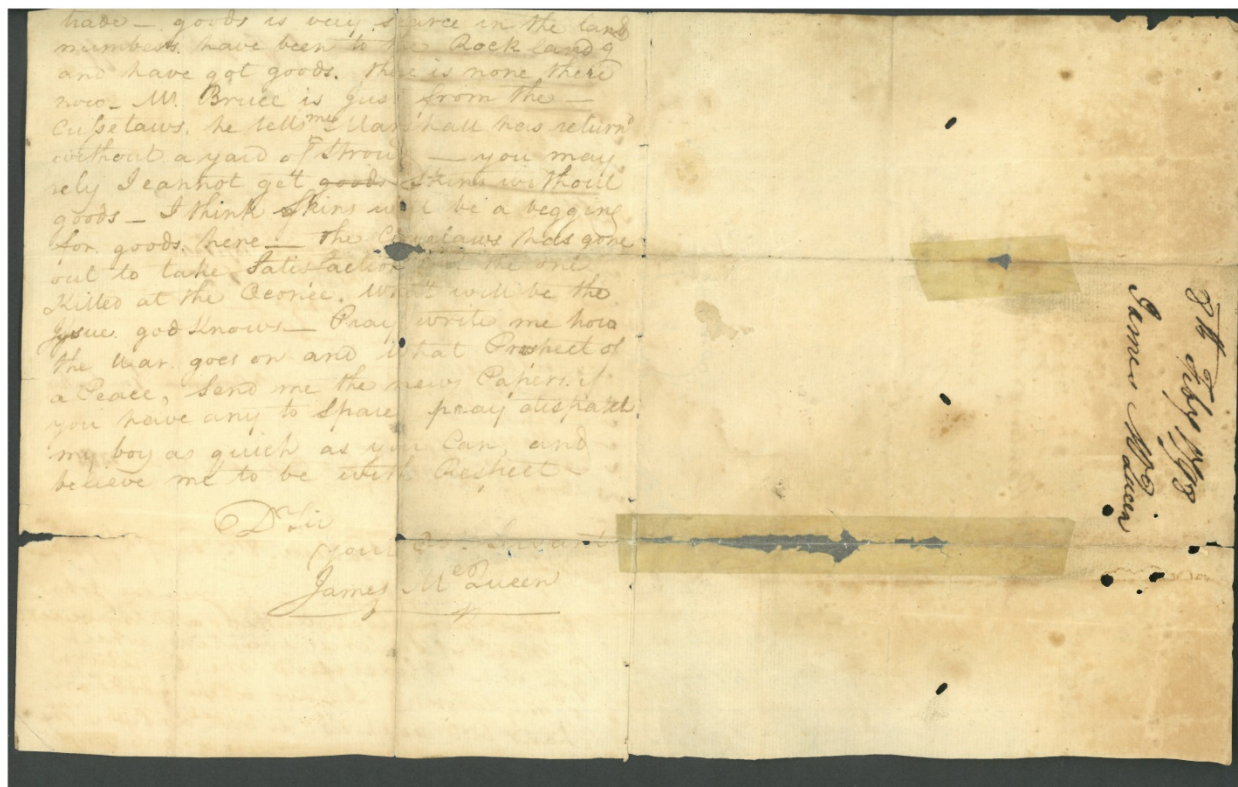 trade — goods is very scarce in the land
numbers have been to the Rock Land g
and have got goods. there is none there
now — Mr. Bruce is just from the —
Cussetaws. he tells me Marshall has return'd
without a yard of Stroud — you may
rely I cannot get goods Skins without
goods — I think Skins will be a begging
for goods here — the Cussetaws has gone
out to take Satisfaction for the one
Killed at the Oconee. What will be the
Issue god Knows — Pray write me how
the War goes on and what Prospect of
a Peace, Send me the news Papers if
you have any to Spare pray dispatch
my boy as quick as you Can and
believe me to be with Respect
D Sir
your Servant
James McQueen
8th Feby
James McQueen